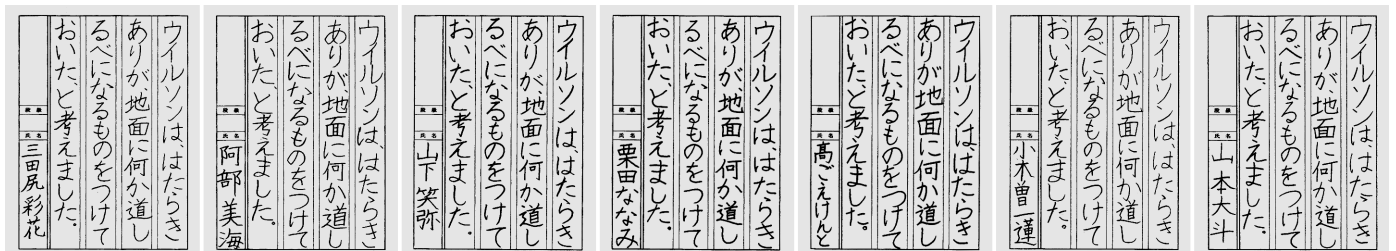 ウイルソンは、はたらき
ありが、地面に何か道し
るべになるものをつけて
おいた、と考えました。
段級
氏名
三田尻彩花
ウイルソンは、はたらき
ありが、地面に何か道し
るべになるものをつけて
おいた、と考えました。
段級
氏名
阿部美海
ウイルソンは、はたらき
ありが、地面に何か道し
るべになるものをつけて
おいた、と考えました。
段級
氏名
山下笑弥
ウイルソンは、はたらき
ありが、地面に何か道し
るべになるものをつけて
おいた、と考えました。
段級
氏名
栗田ななみ
ウイルソンは、はたらき
ありが、地面に何か道し
るべになるものをつけて
おいた、と考えました。
段級
氏名
髙ごえけんと
ウイルソンは、はたらき
ありが、地面に何か道し
るべになるものをつけて
おいた、と考えました。
段級
氏名
小木曽一蓮
ウイルソンは、はたらき
ありが、地面に何か道し
るべになるものをつけて
おいた、と考えました。
段級
氏名
山本大斗